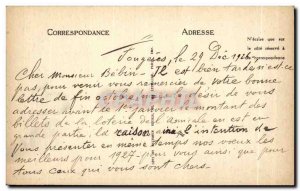 CORRESPONDANCE
ADRESSE
N'écrire que sur
le côté réservé à
correspondance
Fougères, le 29 Déc 1926
Cher Monsieur Bébin - Il est bien tard n'est ce
pas, pour venir vous remercier de votre bonne
lettre de fin
désir de vous
adresser avant le 1er janvier le montant des
billets de la loterie de l'amicale en est en
grande partie, la raison, mais l'intention de
vous présenter en même temps nos voeux les
meilleurs pour 1927 - pour vous ainsi que pour
tous ceux qui vous sont chers.